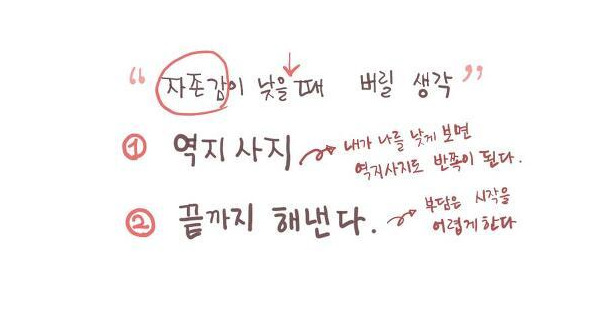 “ 자존감이 낮을 때 버릴 생각 ”
① 역지사지 내가 나를 낮게 보면
역지사지도 반쪽이 된다.
② 끝까지 해낸다. 부담은 시작을
어렵게 한다